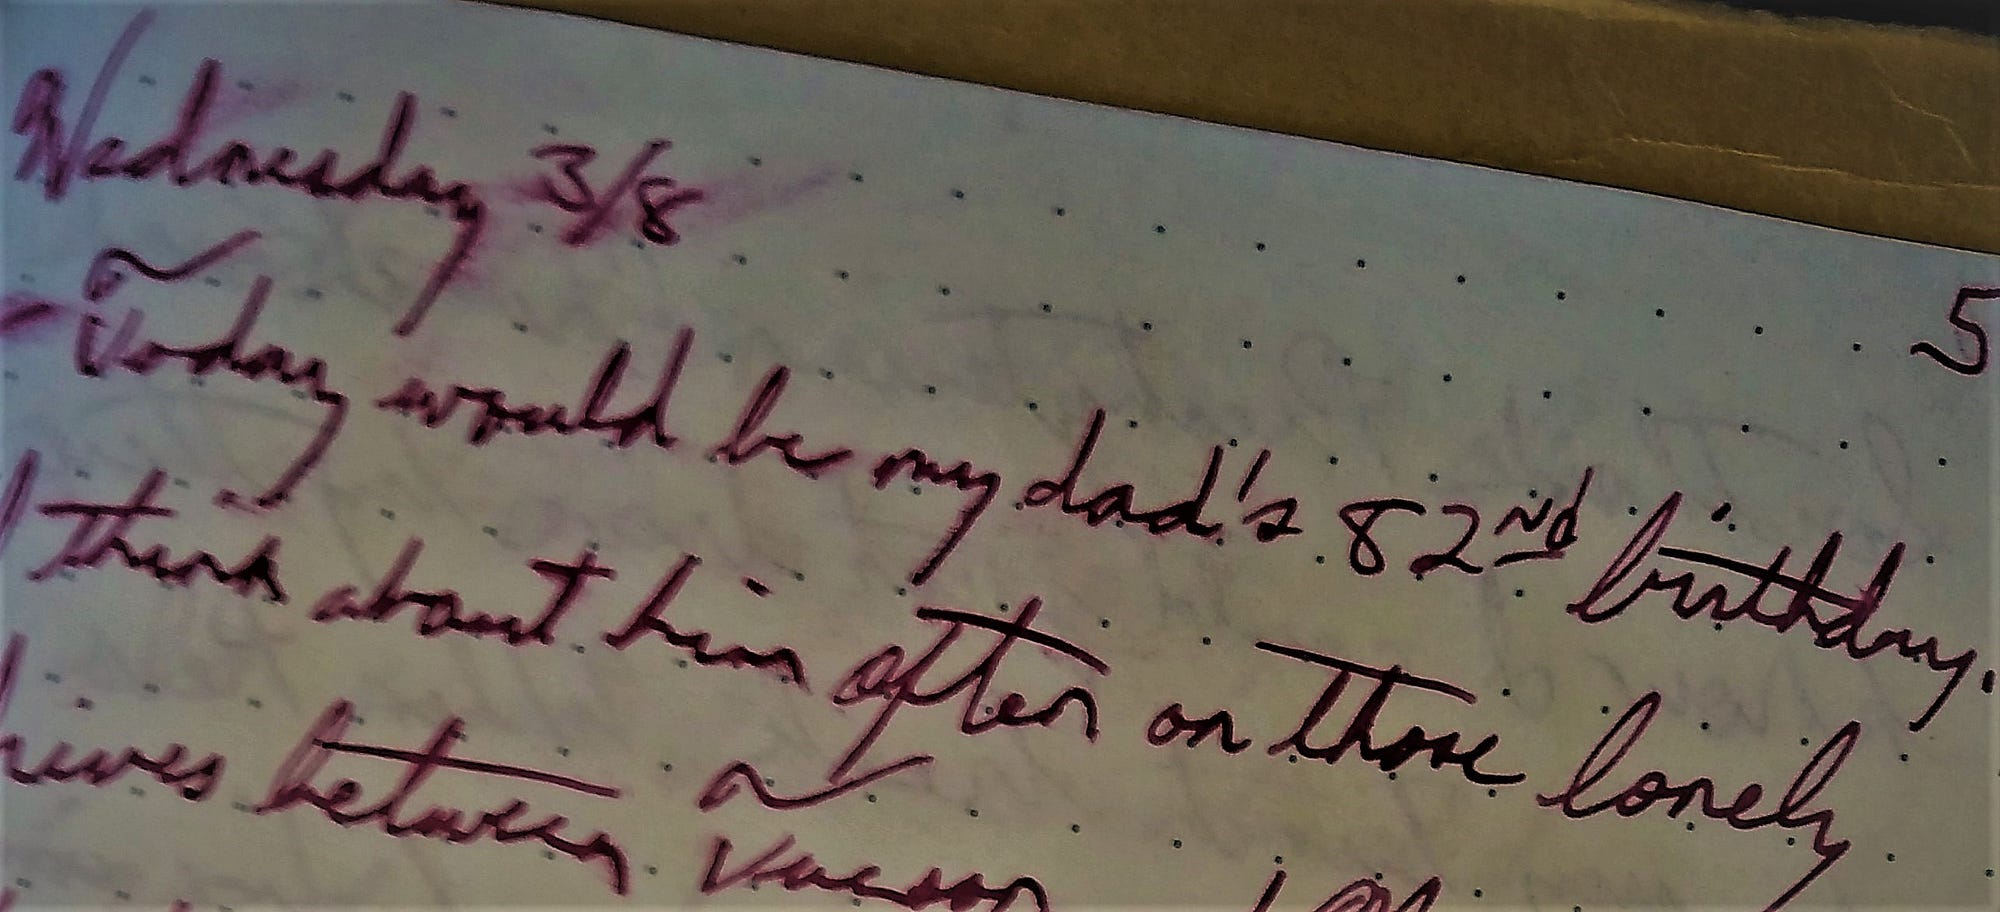 Wednesday 3/8
5
- Today would be my dad's 82nd birthday.
I think about him often on those lonely
between Tucson